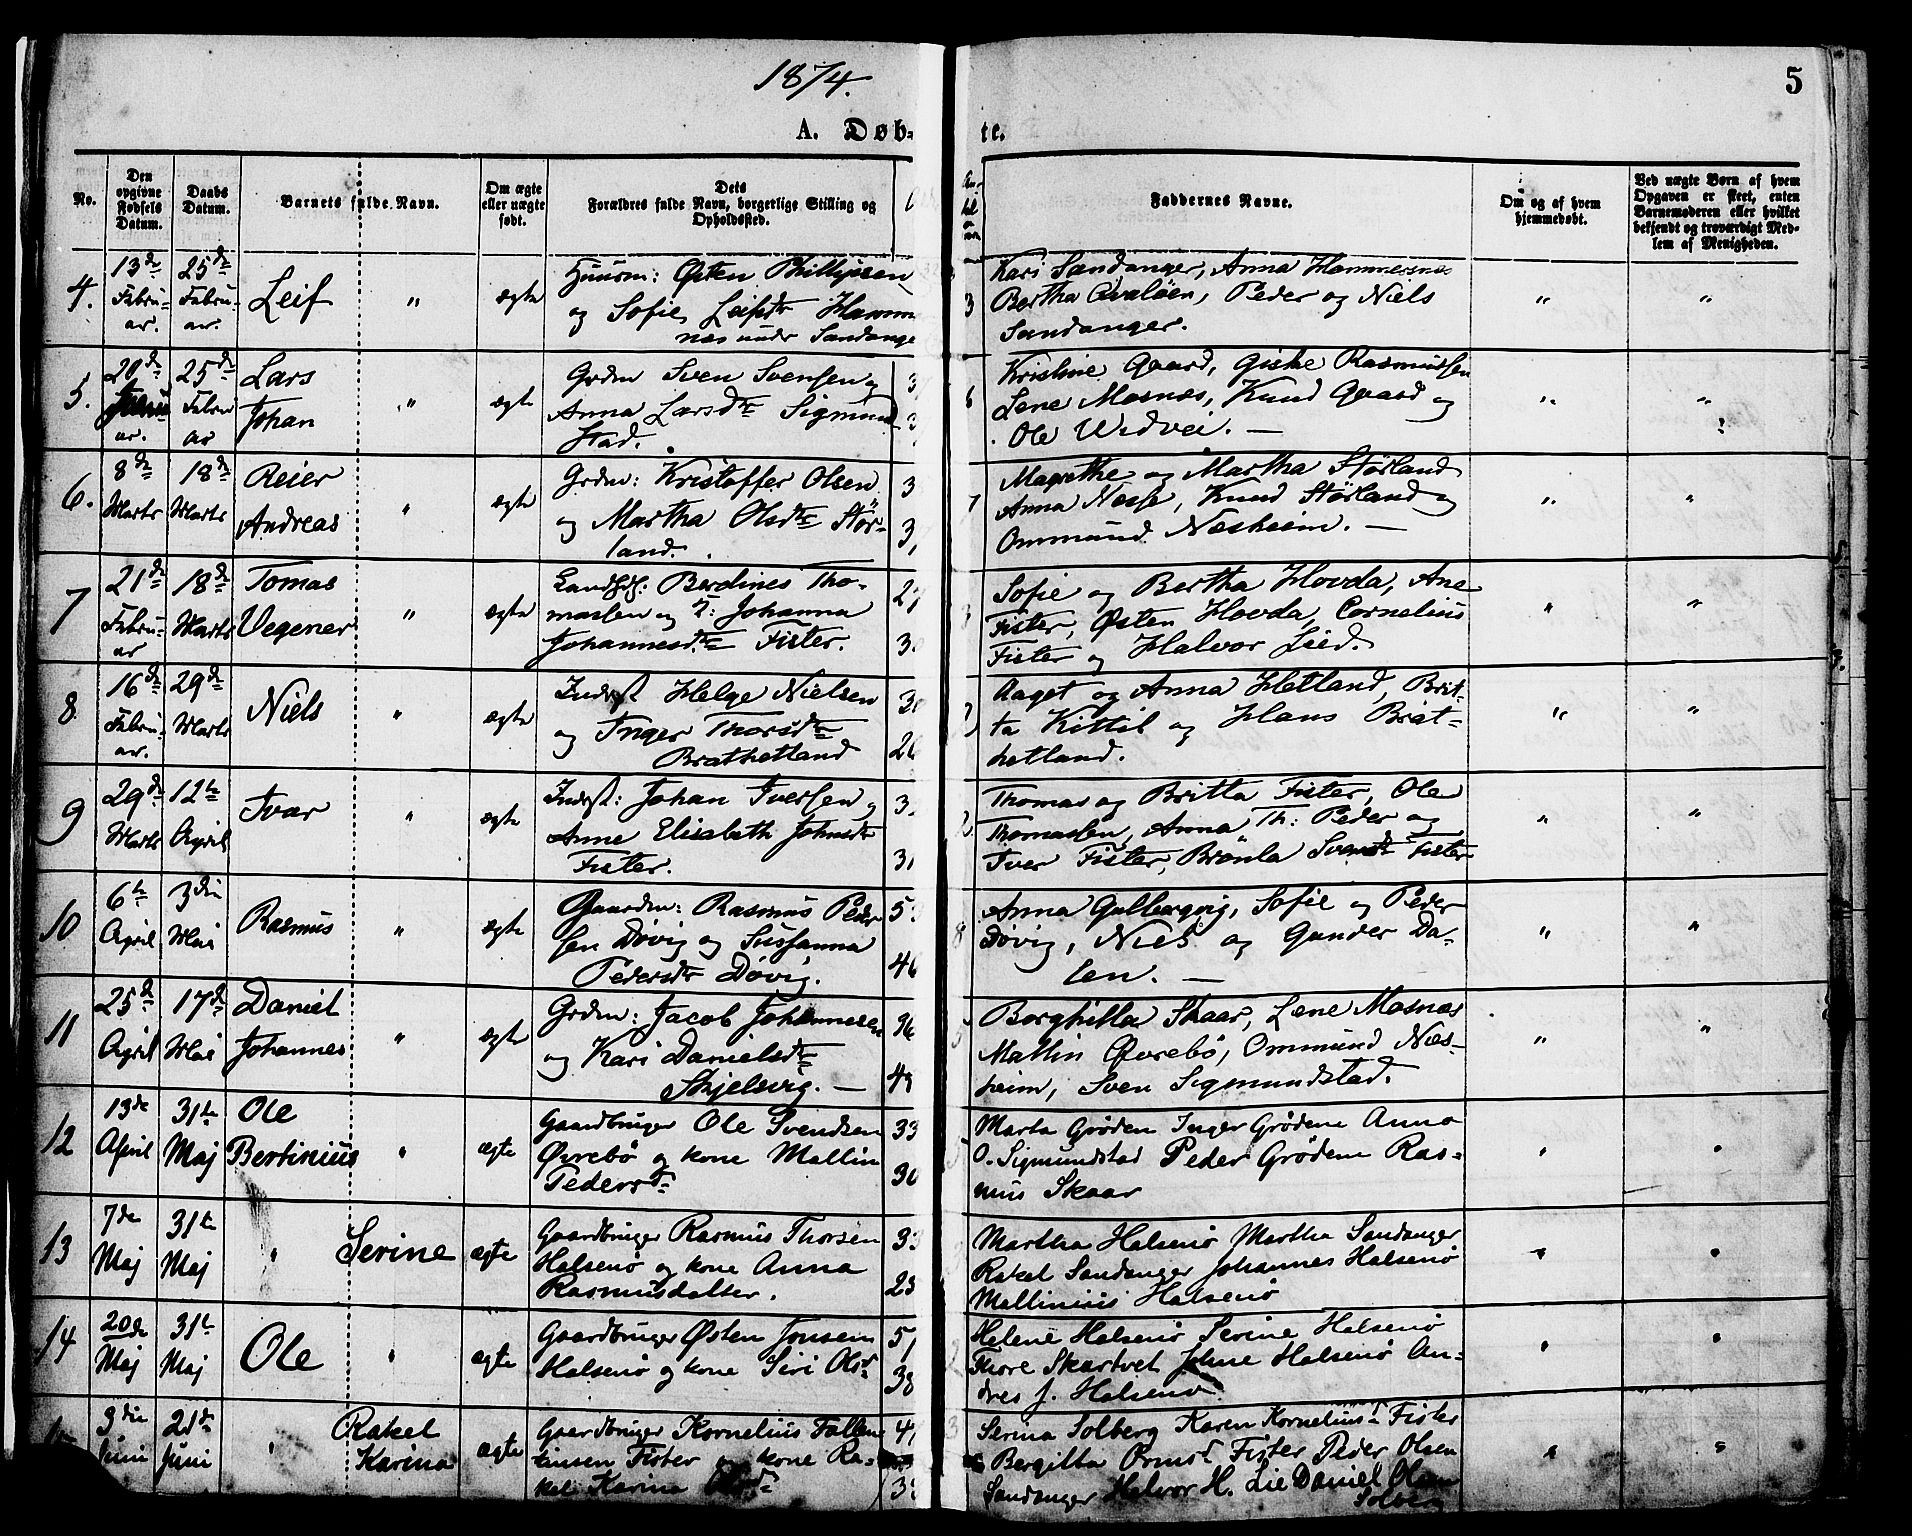 1874.
5
A. Døb-
te.
No.
Den opgivne Fødsels Datum.
Daabs Datum.
Barnets fulde Navn.
Om ægte eller uægte født.
Dets Forældres fulde Navn, borgerlige Stilling og Opholdssted.
Faddernes Navne.
Om og af hvem hjemmedøbt.
Ved uægte Børn af hvem Opgaven er skeet, enten Barnemoderen eller hvilket bekjendt og troværdigt Medlem af Menigheden.
4.
13de Februar.
25de Februar.
Leif
"
ægte
Huusm: Østen Phillipsen
og Sofie Leifsdtr Hammer
næs under Sandange
Kari Sandanger, Anna Hammersnes
Bertha Qvaløen, Peder og Niels
Sandanger.
"
"
5.
25de Februar
Lars
Johan
"
ægte
Grdm Sven Svensen og
Anna Larsdtr Sigmund
stad.
Kristine Gaard, Giske Rasmussen
Lene Mosnæs, Knud Gaard og
Ole Widvei. —
"
"
6.
8de Marts
18de Marts
Reier
Andreas
"
ægte
Grdm: Kristoffer Olsen
og Martha Olsdtr Stør-
land.
3
7
Magrethe og Martha Størland
Anna Nesse, Knud Størland og
Ommund Næsheim. —
"
"
7
21de Februar
18de Marts
Tomas
Vegener
"
ægte
Landhdl: Berdines Tho-
massen og H: Johanna
Johannesdtr Fister.
27
Sofie og Bertha Hovda, Ane
Fister, Østen Hovda, Cornelius
Fister og Halvor Lied.
"
"
8
16de Februar.
29de Marts
Niels
"
ægte
Inderst Helge Nielsen
og Inger Thorsdtr
Brathetland
26
Aaget og Anna Hetland, Brit-
ta Kittil og Hans Brat-
hetland.
"
"
9
29de Marts
12te April
Ivar
"
ægte
Inderst: Johan Iversen og
Anne Elisabeth Johnsdtr
Fister.
31
Thomas og Britta Fister, Ole
Thomassen, Anna Th: Peder og
Iver Fister, Brønla Svendsdtr Fister
"
"
10
6te April
3die Mai
Rasmus
"
ægte
Gaardm: Rasmus Peder
sen Døvig og Sussanna
Pedersdtr Døvig.
46
8
Anna Gulbergvig, Sofie og Peder
Døvig, Niels og Gunder Da-
len. —
"
"
11
25de April
17de Mai
Daniel
Johannes
"
ægte
Grdm: Jacob Johannesen
og Kari Danielsdtr
Skjelsvig. —
36
Borghilla Skaar, Lene Mosnæs
Mallin Øvrebø, Ommund Næs-
heim, Sven Sigmundstad.
"
"
12
13de April
31te Maj
Ole
Bertinius
"
ægte
Gaardbruger Ole Svendsen
Øvrebø og kone Mallin
Pedersdt
33
30
5
Marta Grøden Inger Grødene Anna
O. Sigmundstad Peder Grødem Ras-
mus Skaar
"
"
13
7de Maj
31te Maj
"
Serine
ægte
Gaardbruger Rasmus Thorsen
Halsenø og kone Anna
Rasmusdatter.
33
23
Martha Halsenø Martha Sandanger
Rakel Sandanger Johannes Halsenø
Mallinius Halsenø
"
"
14
20de Maj
31te Maj
Ole
"
ægte
Gaardbruger Østen Jonsen
Halsenø og kone Siri Olsdt
51
38
Helene Halsenø Serine Halsenø
Thore Skartvet Johne Halsenø An-
dres J. Halsenø
"
"
3die Juni
21de Juni
"
Rakel
Karina
ægte
Gaardbruger Kornelius Tallem
Fister og kone Ra-
kel Karina Olsdt
Serina Solberg Karen Korneliusdt Fister
Bergitta Ormsdt Fister Peder Olsen
Sandanger Halvor H. Lie Daniel Olsen
Solberg
"
"